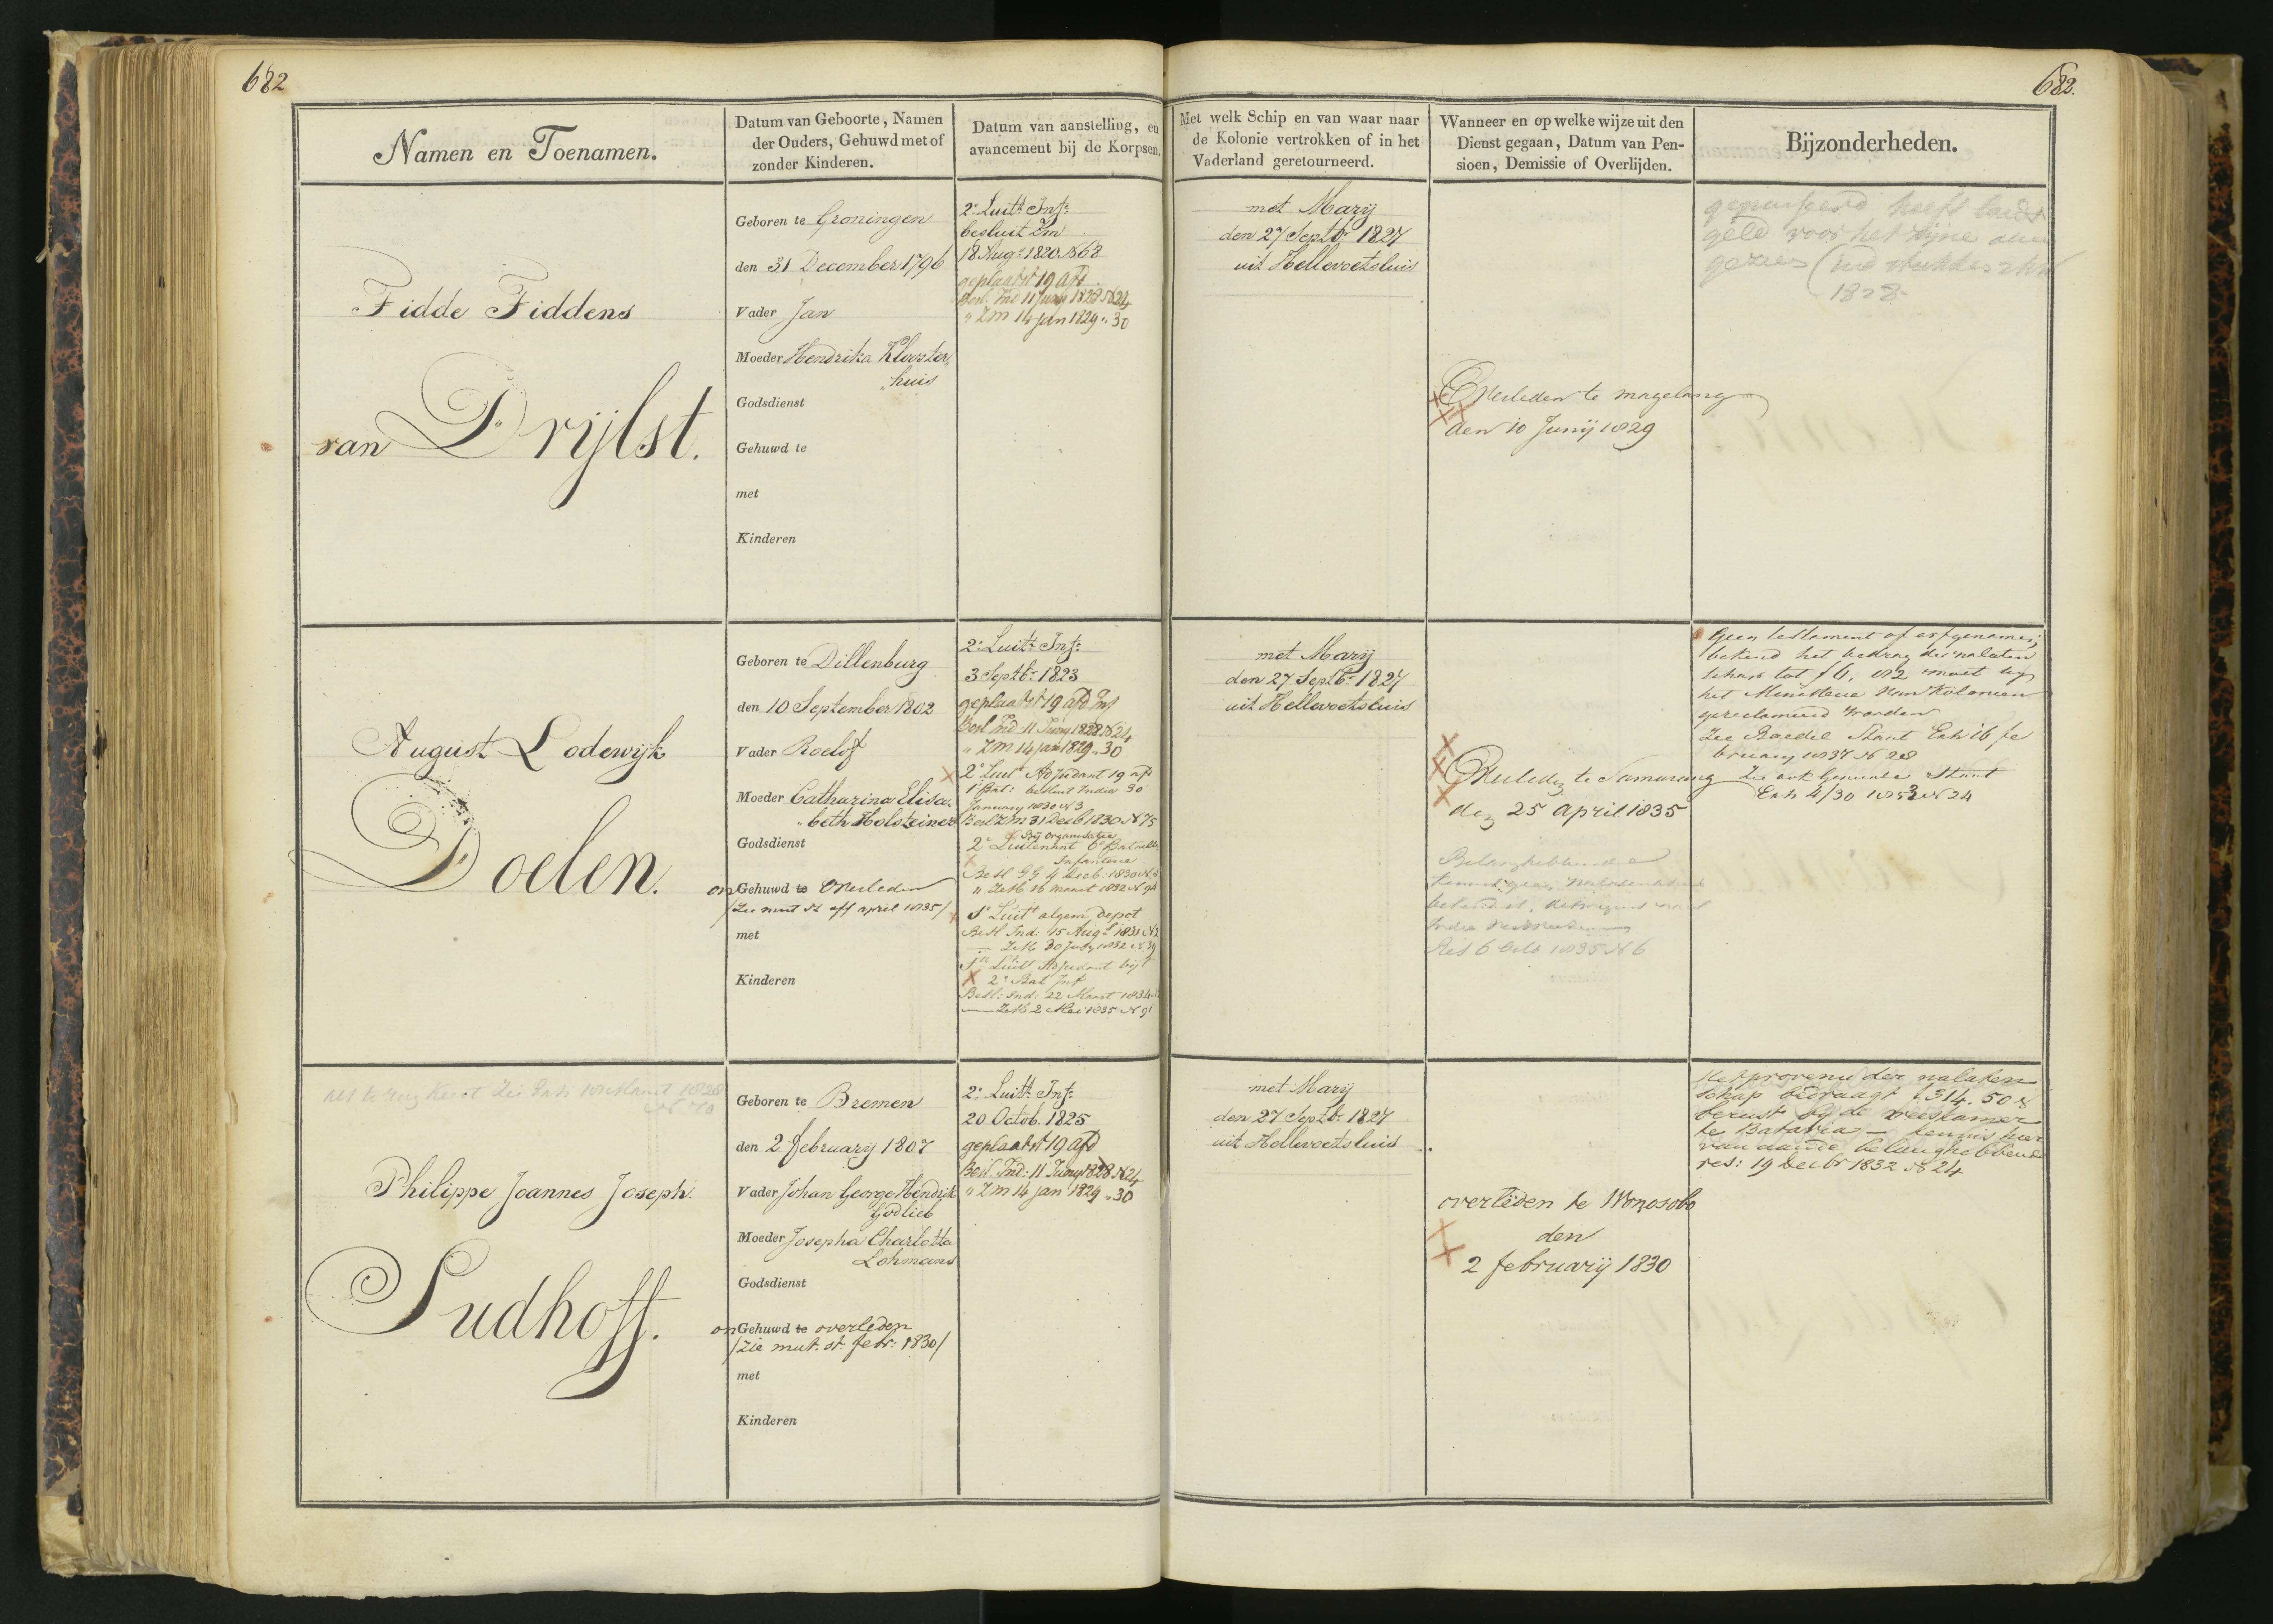 682
682.
Namen en Toenamen.
Datum van Geboorte, Namen
der Ouders, Gehuwd met of
zonder Kinderen.
Datum van aanstelling, en
avancement bij de Korpsen.
Met welk Schip en van waar naar
de Kolonie vertrokken of in het
Vaderland geretourneerd.
Wanneer en op welke wijze uit den
Dienst gegaan, Datum van Pen-
sioen, Demissie of Overlijden.
Bijzonderheden.
Fidde Fiddens
van Drijlst.
Geboren te Groningen
den 31 December 1796
Vader Jan
Moeder Hendrika Klooster,,
huis
Godsdienst
Gehuwd te
met
Kinderen
2e Luitt Infe
besluit Zm
18 Augs 1820 N68
geplaatst 19 afd
Besl. Ind 11 Juny 1828 N24
" Zm 14 jan 1829 " 30
met Marij
den 27 Septbr 1827
uit Hellevoetsluis
Overleden te magelang
den 10 Junij 1829
heeft
geld voor het zijne
1828
August Lodewijk
Doelen.
Geboren te Dillenburg
den 10 September 1802
Vader Roelof
Moeder Catharina Elisa,,
beth Holsteiner
Godsdienst
onGehuwd te Overleden
/Zie mut st off april 1835/
met
Kinderen
2e Luitt Infe
3 Septbr 1823
geplaatst 19 afd Inf
Besl Ind 11 Juny 1828 N24
" Zm 14 jan 1829 " 30
2e Luit Adjudant 19 afd
1e Bat: besluit India 30
January 1830 N3
Besl Zm 31 Decb 1830 N75
Bij Organisatie
2e Luitenant 6e Bataillon
Infanterie
Besl GG 4 Decb. 1830 N
" ZeK 16 maart 1832 N 94
1e Luitt algem Depot
Besl Ind: 15 Augs 1831 N2
ZeK 30 July 1832 N
1e Luitt Adjudant bij t
2e Bat Inf
Besl: Ind: 22 Maart 1834
ZeK 2 Mei 1835 N 91
met Marij
den 27 Septbr 1827
uit Hellevoetsluis
Overleden te Samarang
den 25 april 1835
Belanghebbende
India
Res 6 Octb 1835 N 6
Geen testament of erfgenamen
bekend het bedrag der nalaten
schap tot f 6, 012 moet bij
het Ministerie van Kolonien
gereclameerd worden
Zie Boedel Staat Exh 16 fe
bruary 1837 N 28
Zie ook Staat
Exh 4/30 1853 N 24
Zie Exh 10 Maart 1828
N 70
Philippe Joannes Joseph.
Sudhoff.
Geboren te Bremen
den 2 february 1807
Vader Johan George Hendrik
Godlieb
Moeder Josepha Charlotta
Lohmans
Godsdienst
onGehuwd te overleden
/zie mut. st. febr: 1830/
met
Kinderen
2e Luitt Infe
20 Octob. 1825
geplaatst 19 afd
Besl Ind: 11 Juny 1828 N24
" Zm 14 jan 1829 " 30
met Marij
den 27 Septbr 1827
uit Hellevoetsluis
overleden te Wonosobo
den
2 february 1830
Het provenu der nalaten
schap bedraagt f 314. 50
berust bij de weeskamer
te Batavia – kennis hier
van aan de belanghebbende
res: 19 Decbr 1832 N 24